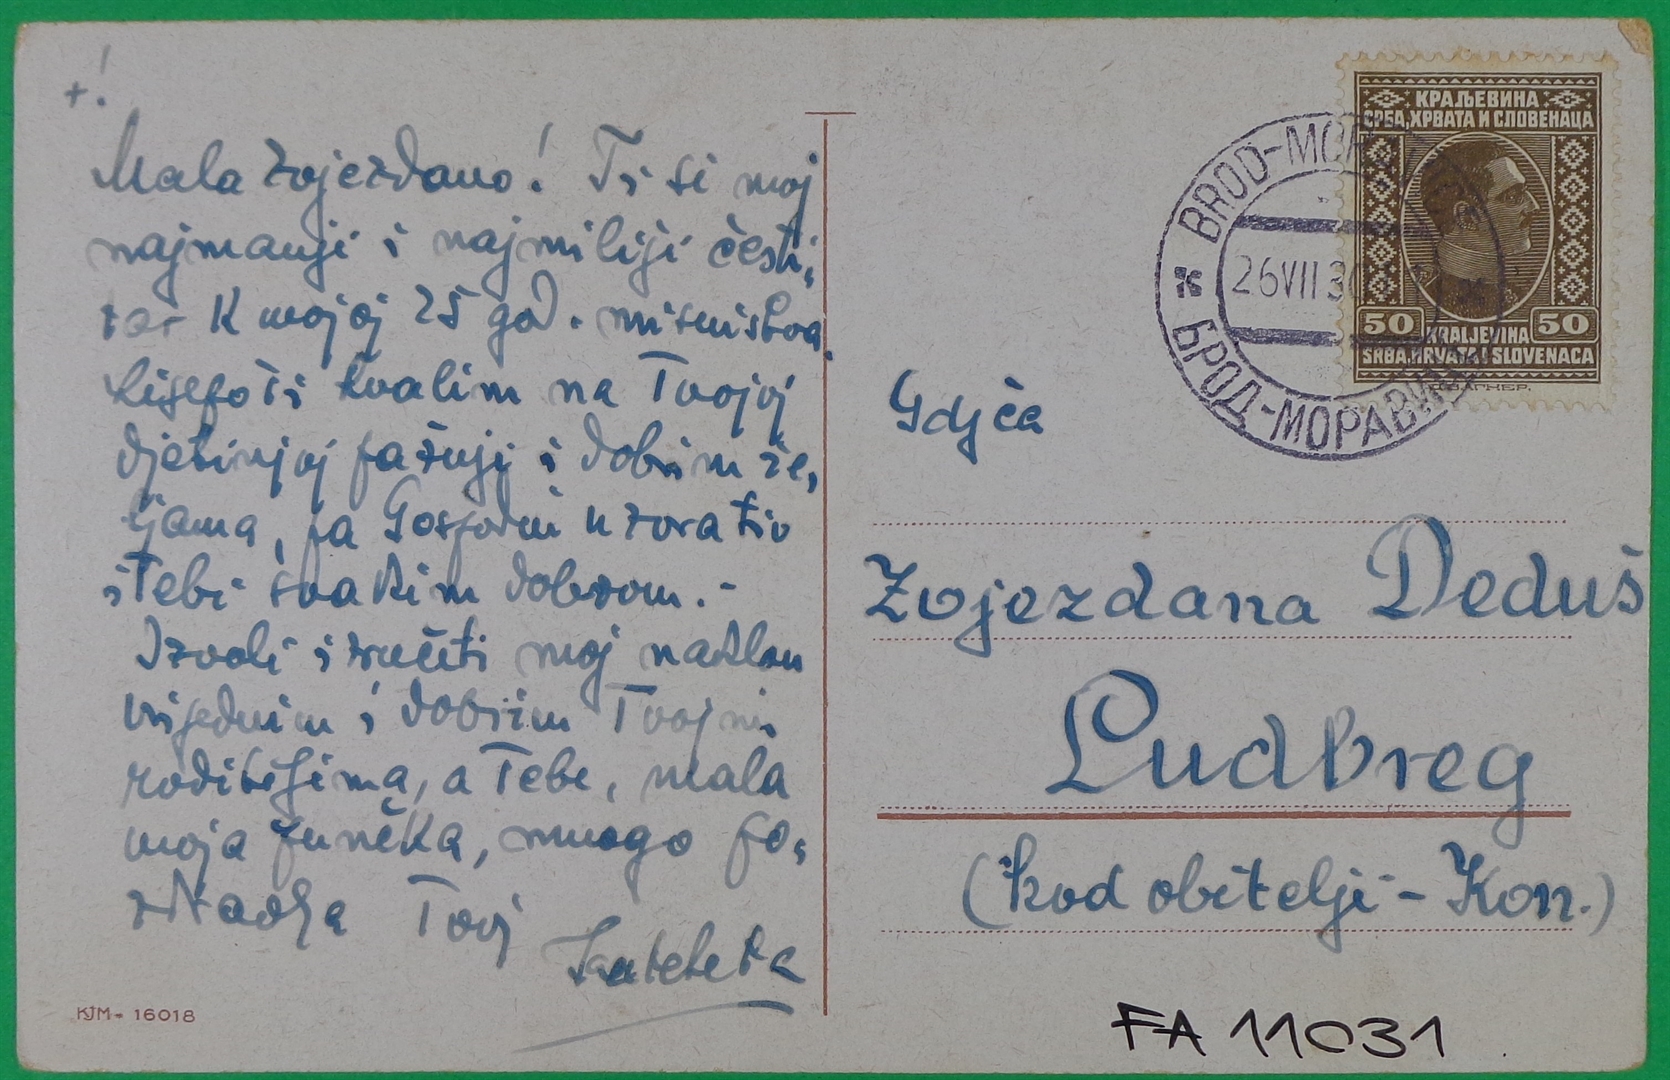 +!
Mala Zvjezdano! Ti si moj
najmanji i najmiliji česti,
tar k mojoj 25 god. misništva.
Lijepo ti hvalim na Tvojoj
djetinjoj pažnji i dobrim že,
ljama, pa Gospodin uzvratio
i Tebi svakim dobrom.-
Izvoli izručiti moj naklon
vrijednim i dobrim Tvojim
roditeljima, a Tebe, mala
moja, mnogo po,
zdravlja Tvoj
KJM- 16018
КРАЉЕВИНА
СРБА, ХРВАТА И СЛОВЕНАЦА
50 KRALJEVINA 50
SRBA, HRVATA I SLOVENACA
BROD-MOR
26 VII 30
БРОД-МОРАВИ
Gdjča
Zvjezdana Deduš
Ludbreg
(kod obitelji - Kon.)
FA 11031